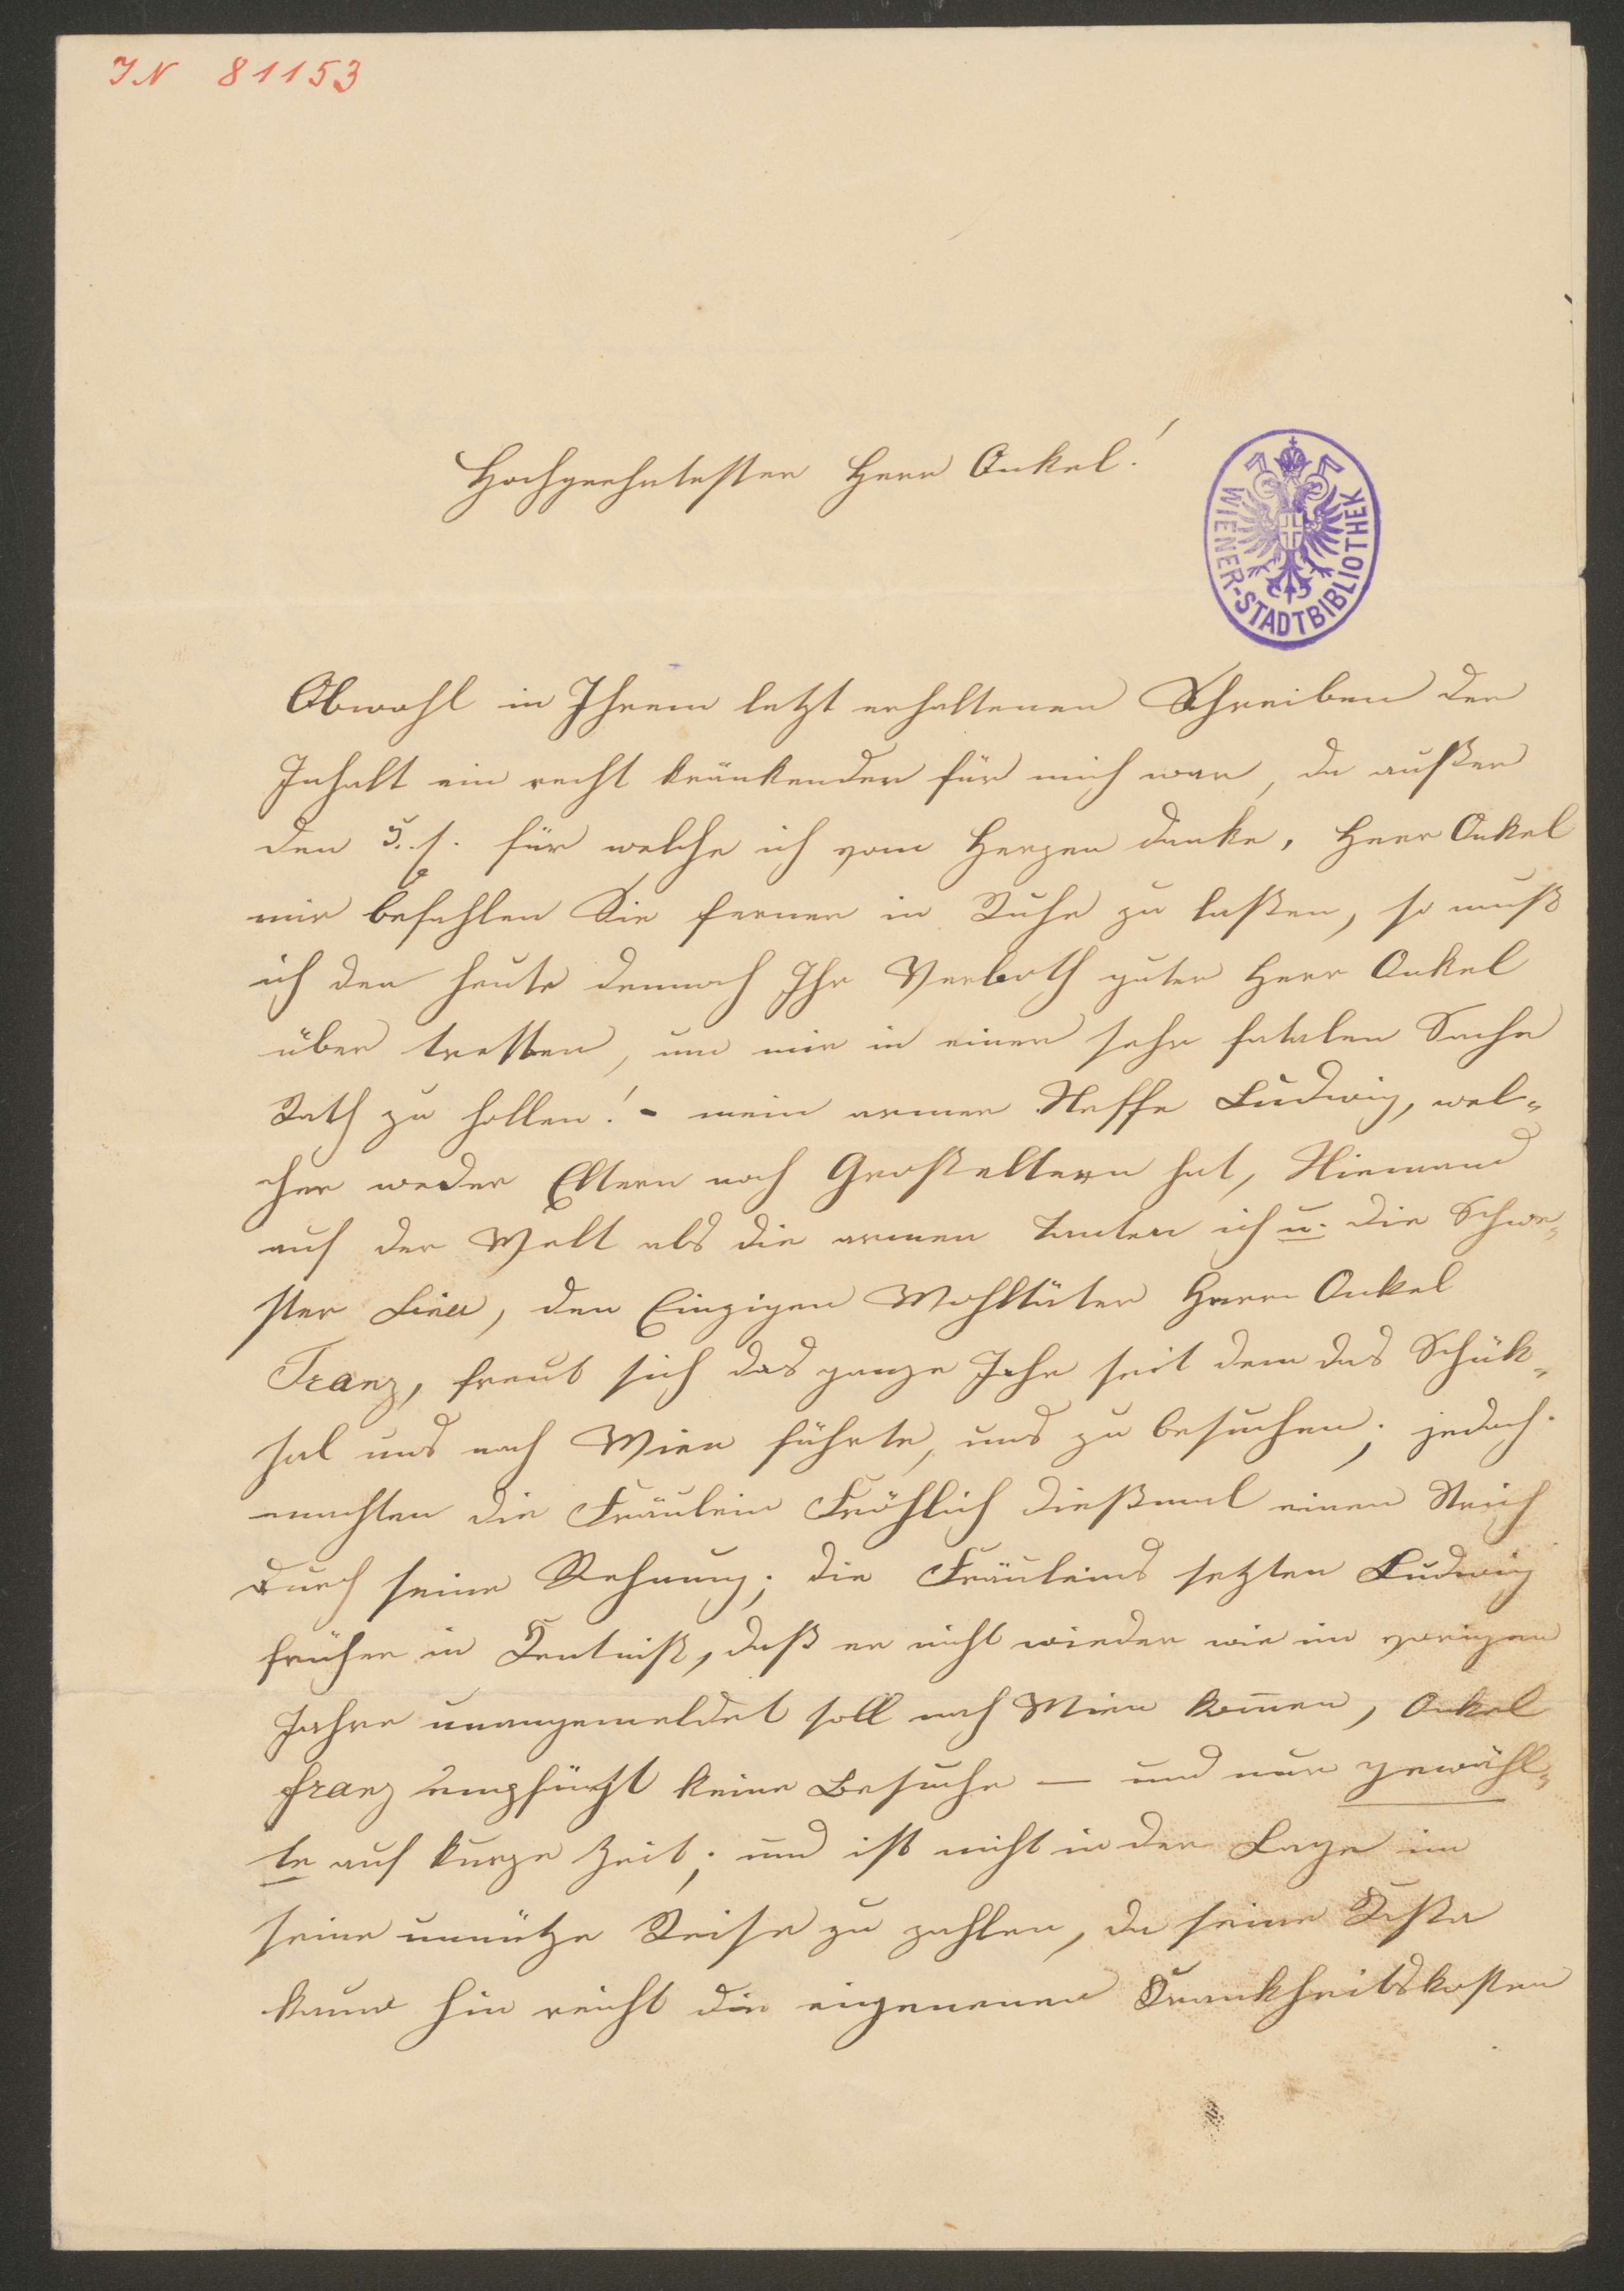 IN 81153
Hochgeehrtester Herr Onkel!
WIENER-STADTBIBLIOTHEK
Obwohl in Ihrem letzt erhaltenen Schreiben der
Inhalt ein recht kränkender für mich war, da außer
den 5. f. für welche ich vom Herzen danke, Herr Onkel
mir befahlen Sie ferner in Ruhe zu laßen, so muß
ich den heute dennoch Ihr Verboth guter Herr Onkel
über tretten, um mir in einer sehr fatalen Sache
Rath zu hollen! - mein armer Neffe Ludwig, wel-
cher weder Eltern noch Großeltern hat, Niemand
auf der Welt als die armen Tanten ich u. die Schwe-
ster Lina, den Einzigen Wohltäter Herrn Onkel
Franz, freut sich das ganze Jahr seit dem das Schük-
sal uns nach Wien führte, uns zu besuchen; jedoch
machten die Fräulein Fröhlich dießmal einen Strich
durch seine Rehnung; die Fräuleins setzten Ludwig
früher in Kentniß, daß er nicht wieder wie im vorigen
Jahre unangemeldet soll nach Wien kom̄en, Onkel
Franz empfängt keine Besuche — und nur gewähl-
te auf kurze Zeit; und ist nicht in der Lage im
seine unnütze Reise zu zahlen, da seine Kassa
kaum hin reicht die eigenenen Krankheitskosten